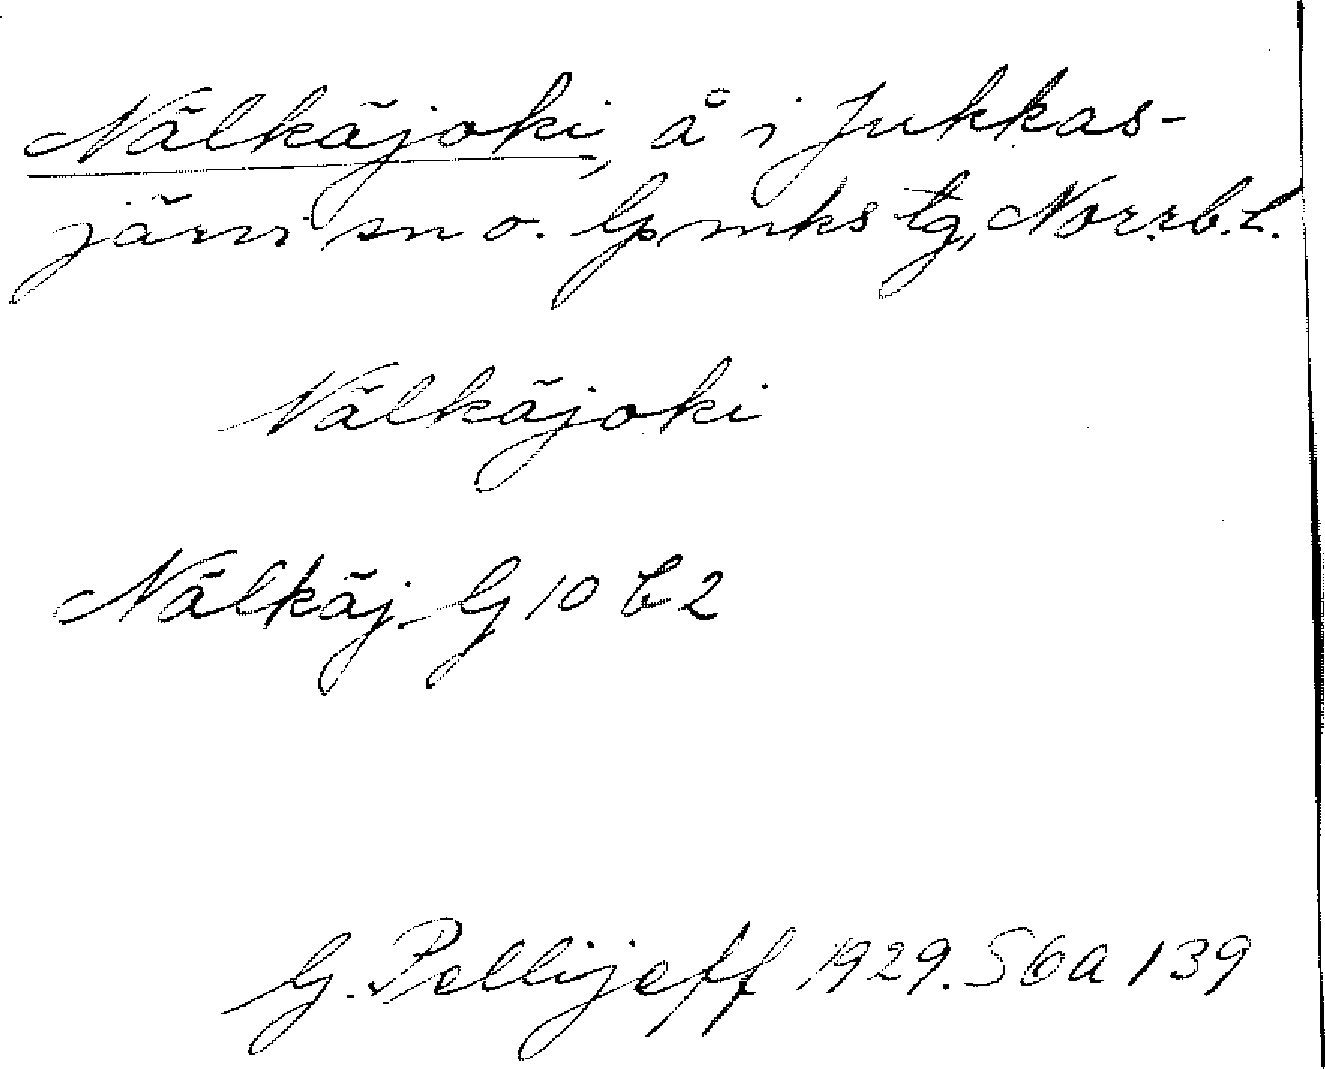 Nälkäjoki, å i Jukkas-
järvi sn o. Gpmks tg, Norrb. L.
Nälkäjoki
Nälkäj. G 10 b 2
G. Pellijeff 1929. S 6a 139